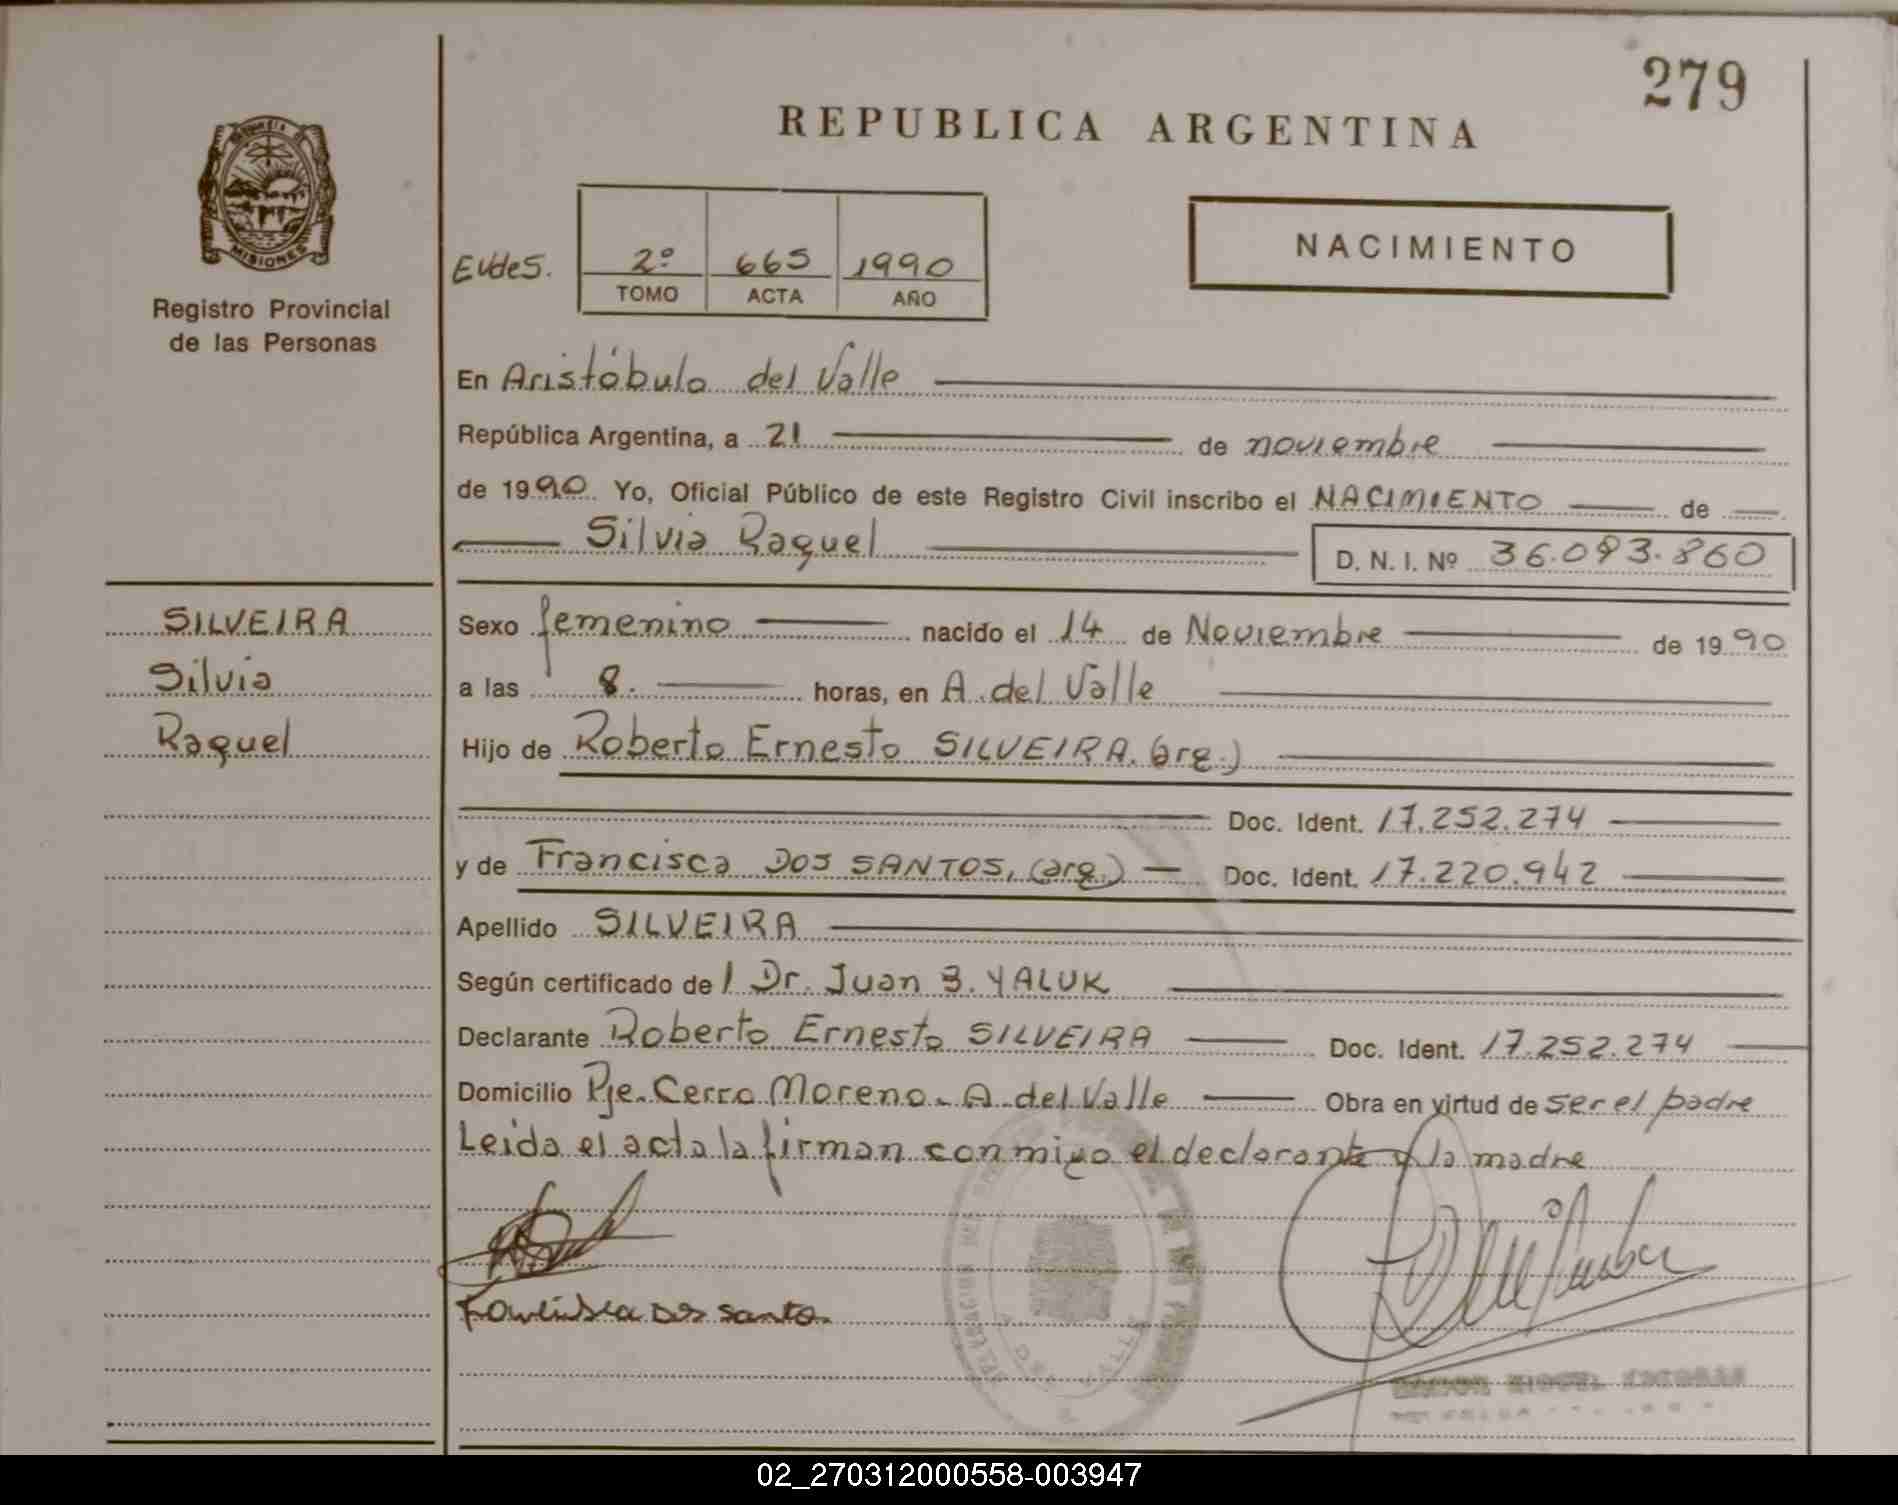 279
REPUBLICA ARGENTINA
MISIONES
Registro Provincial
de las Personas
2º 665 1990
TOMO ACTA AÑO
NACIMIENTO
En Aristóbulo del Valle
República Argentina, a 21 de noviembre
de 1990 Yo, Oficial Público de este Registro Civil inscribo el NACIMIENTO de
Silvia Raquel D. N. I. Nº 36.093.860
SILVEIRA
Silvia
Raquel
Sexo femenino nacido el 14 de Noviembre de 1990
a las 8. horas, en A. del Valle
Hijo de Roberto Ernesto SILVEIRA. (arg.)
Doc. Ident. 17.252.274
y de Francisca DOS SANTOS, (arg.) Doc. Ident. 17.220.942
Apellido SILVEIRA
Según certificado de l Dr. Juan B. YALUK
Declarante Roberto Ernesto SILVEIRA Doc. Ident. 17.252.274
Domicilio Pje. Cerro Moreno. A. del Valle Obra en virtud de ser el padre
Leida el acta la firman conmigo el declarante y la madre
Francisca Dos Santo
02_270312000558-003947